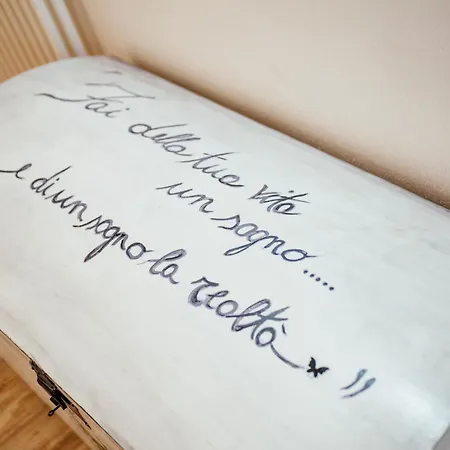 "Fai della tua vita
un sogno.....
e di un sogno, la realtà"